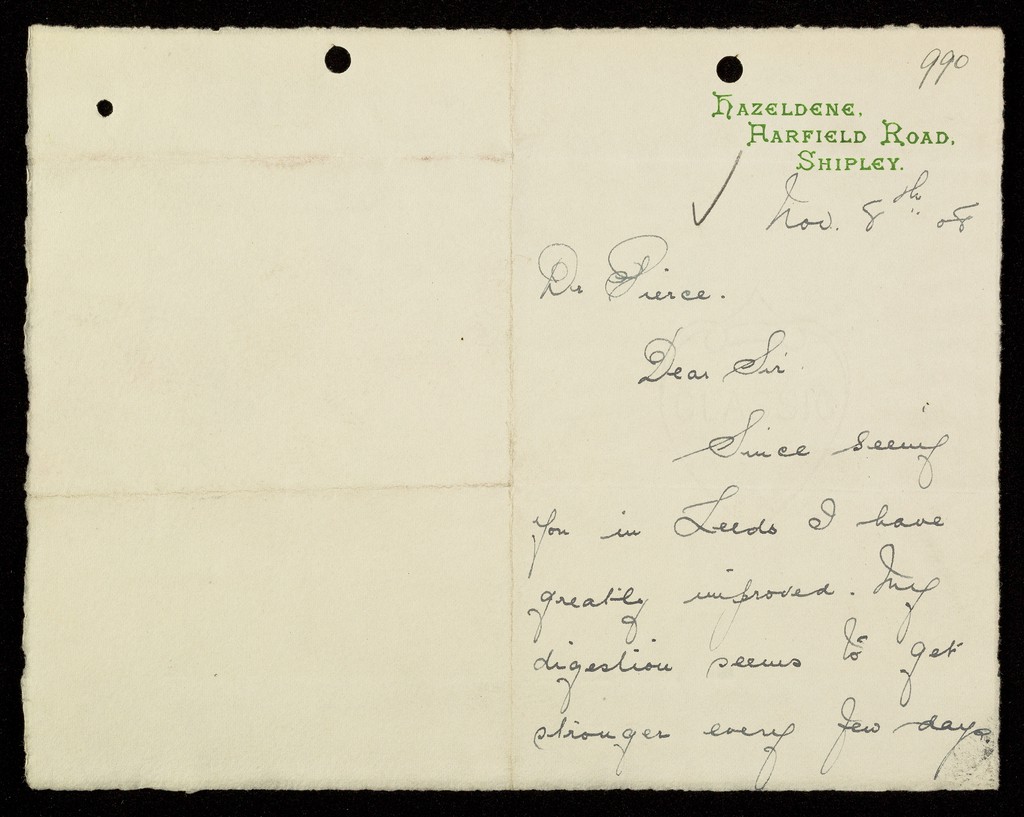 990
HAZELDENE,
HARFIELD ROAD,
SHIPLEY.
Nov. 8th 08
Dr Pierce.
Dear Sir
Since seeing
you in Leeds I have
greatly improved. My
digestion seems to get
stronger every few days.